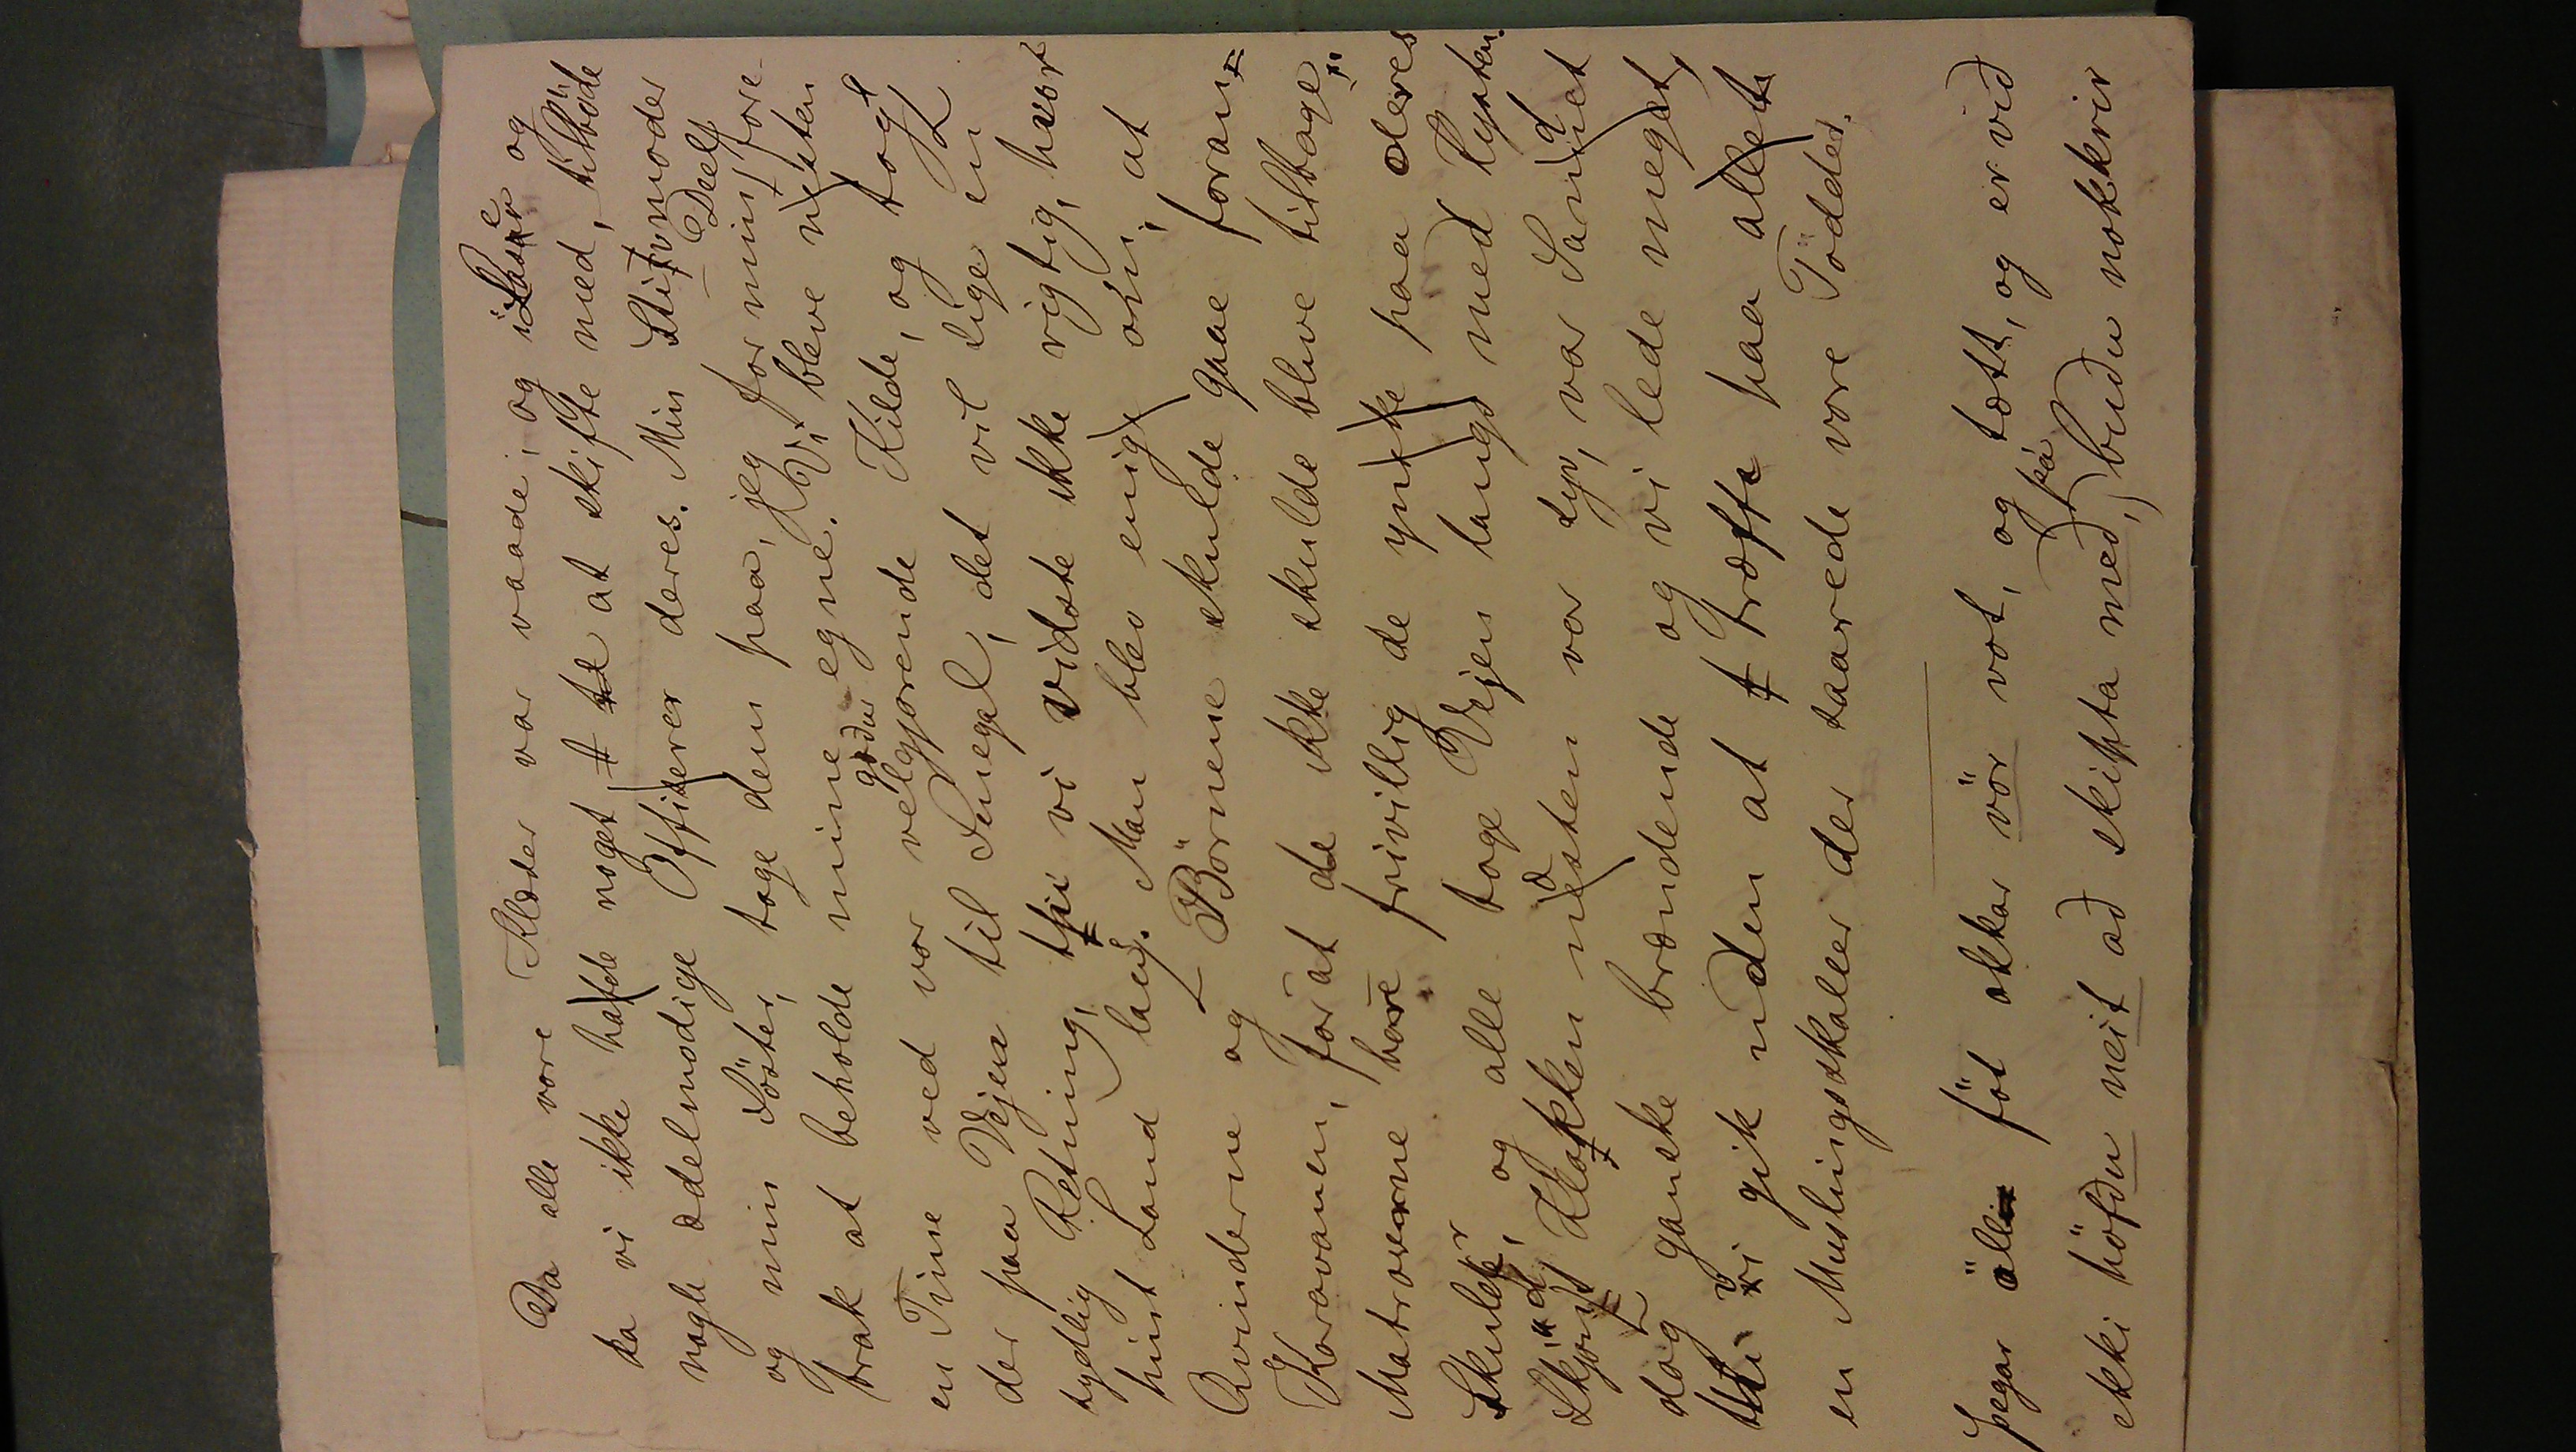 Da alle vore Klæder var vaade, og i Laser og
da vi ikke hafde noget at skifte med, tilböde
nogle ædelmodige Offiserer deres. Min Stifmoder
og min Söster, toge dem paa, jeg for min Deel fore-
trak at beholde mine egne. Vi bleve næsten
en Time ved vor velgjorende Kilde, og togt
godur
der paa Vejen til Senegal, det vil sige en
tydlig Retning, thi vi vidste ikke rigtig, hvor
hint Land laug. Man blev enig om, at
Qvinderne og Börnene skulde gaae foran
Karavanen, for at de ikke skulde blive tilbage
Matroserne bare frivillig de ynste paa deres
Skulder, og alle toge Vejen langs med Kysten.
Skjönt Klokken næsten var syv, var Sandet
dog ganske brændende og vi lede meget,
thi vi gik uden at træffe paa allet
en Muslingskaller der saarede vore Födder.
þegar öll föt okkar vör vot, og tætt, og er við
ekki höfðu neit að skifta með, buðu nokkrir
þá